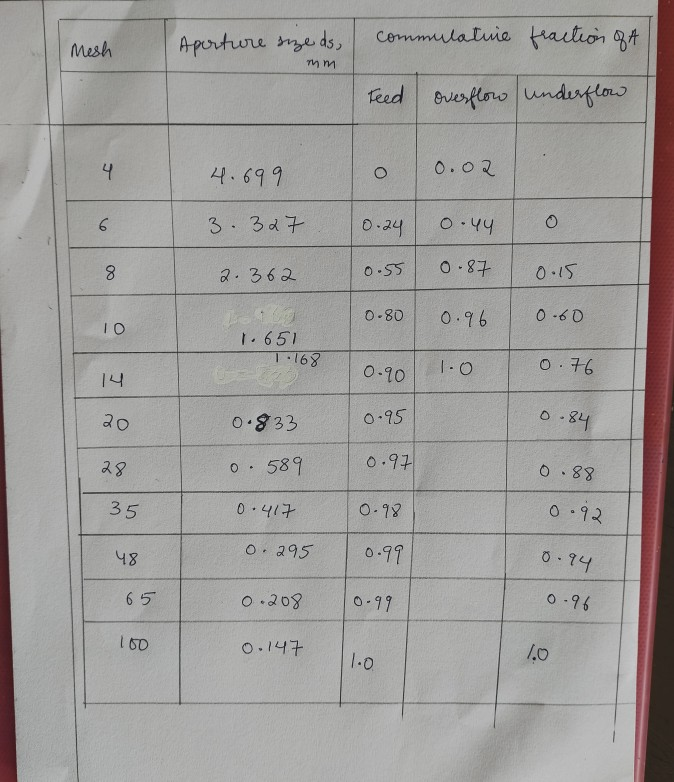 Mesh Aperture size ds, mm Commulative fraction of A
Feed overflow underflow
4 4.699 0 0.02
6 3.327 0.24 0.44 0
8 2.362 0.55 0.87 0.15
10 1.651 0.80 0.96 0.60
14 1.168 0.90 1.0 0.76
20 0.833 0.95 0.84
28 0.589 0.97 0.88
35 0.417 0.98 0.92
48 0.295 0.99 0.94
65 0.208 0.99 0.96
100 0.147 1.0 1.0